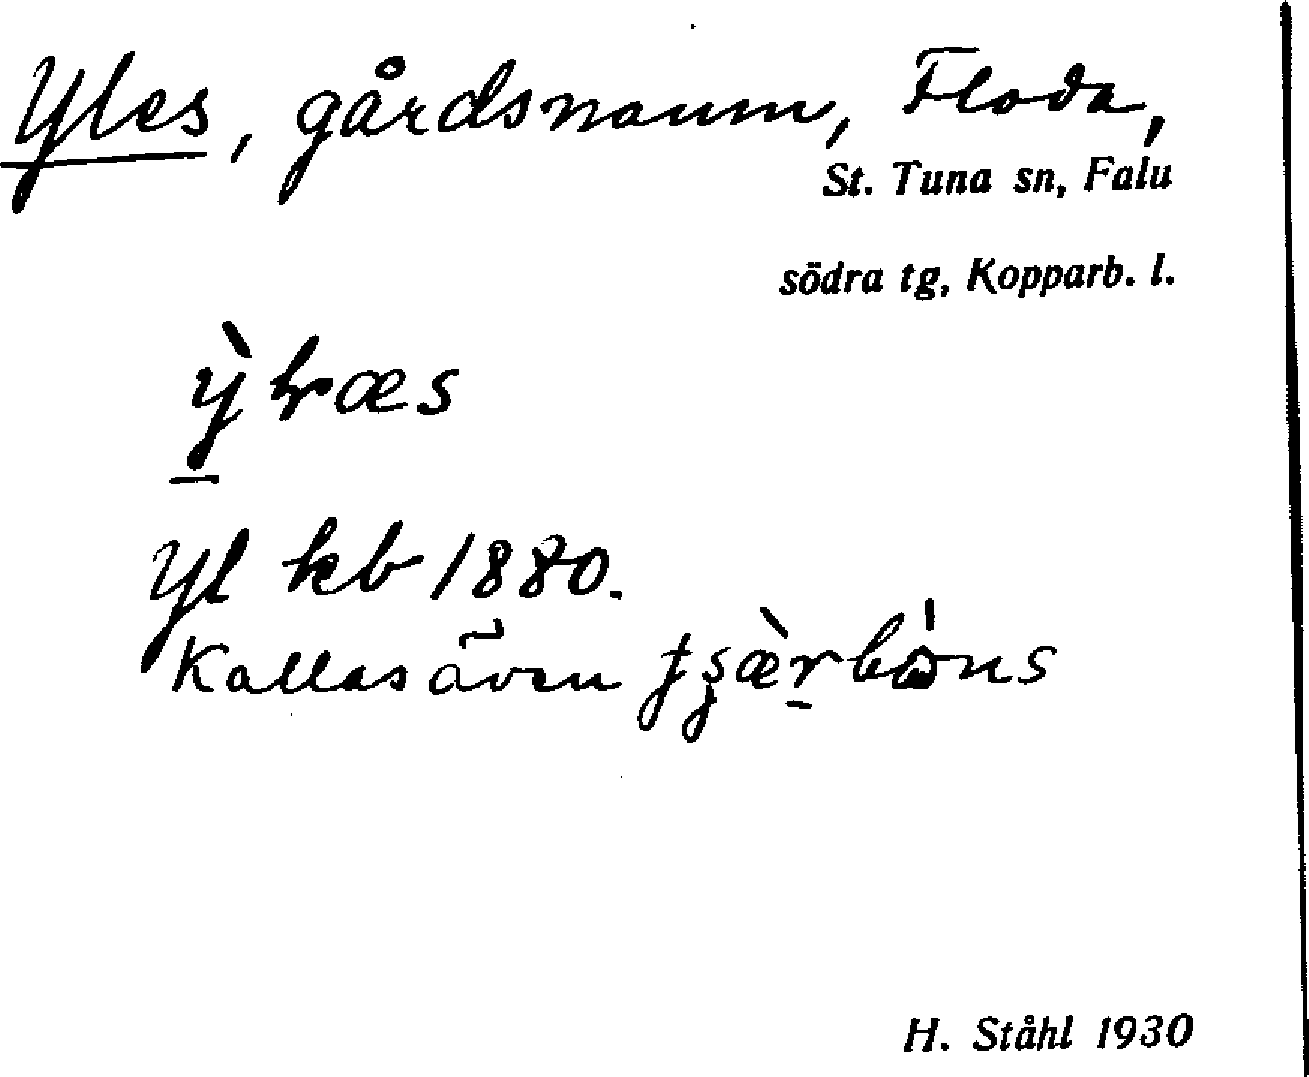 Yles, gårdsnamn, Floda,
St. Tuna sn, Falu
södra tg, Kopparb. l.
Yl kb 1880.
Kallas även
H. Ståhl 1930